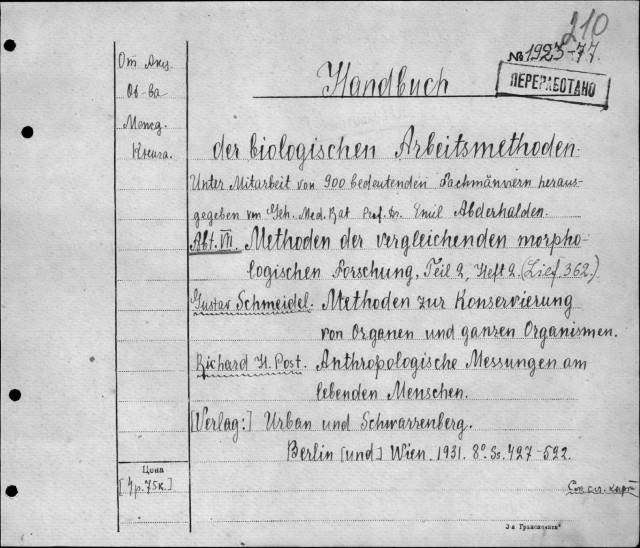 210
№ 1923-77.
ПЕРЕРАБОТАНО
От Акц.
Об-ва
Межд.
Книга.
Handbuch
der biologischen Arbeitsmethoden.
Unter Mitarbeit von 900 bedeutenden Fachmännern heraus-
gegeben von Geh. Med. Rat Prof. Dr. Emil Abderhalden.
Abt. VII. Methoden der vergleichenden morpho-
logischen Forschung, Teil 2, Heft 2. (Lief 362.)
Gustav Schmeidel. Methoden zur Konservierung
von Organen und ganzen Organismen.
Richard H. Post. Anthropologische Messungen am
lebenden Menschen.
[Verlag:] Urban und Schwarzenberg.
Berlin [und] Wien. 1931. 8° Ss. 427-522.
Цена
[4 р. 75 к.]
См. сл. карт